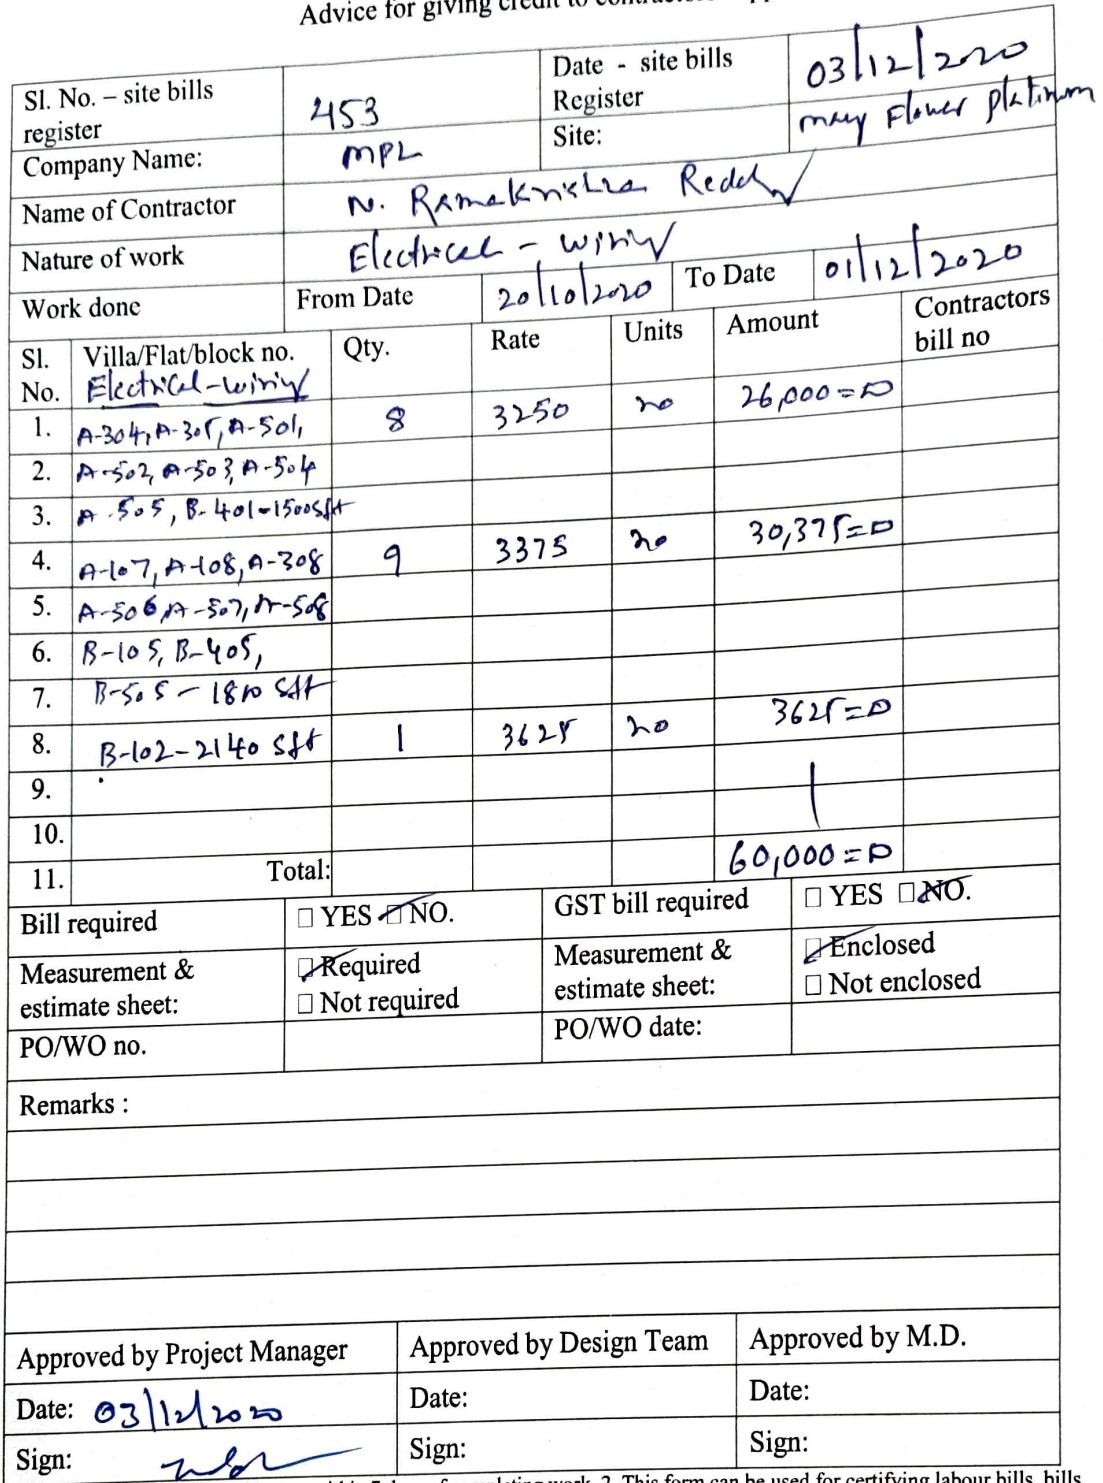 Advice for giving credit to
Sl. No. – site bills register 453 Date - site bills Register 03/12/2020
Company Name: MPL Site: may Flower platinum
Name of Contractor N. Ramakrishna Reddy
Nature of work Electrical - wiring
Work done From Date 20/10/2020 To Date 01/12/2020
Sl. No. Villa/Flat/block no. Qty. Rate Units Amount Contractors bill no
Electrical-wiring
1. A-304, A-305, A-501, 8 3250 no 26,000=0
2. A-502, A-503, A-504
3. A-505, B-401-1500sft
4. A-107, A-108, A-308 9 3375 no 30,375=0
5. A-506, A-507, A-508
6. B-105, B-405,
7. B-505 - 1810 sft
8. B-102-2140 sft 1 3625 no 3625=0
9.
10.
11. Total: 60,000=0
Bill required □ YES □ NO. GST bill required □ YES □ NO.
Measurement & estimate sheet: □ Required □ Not required Measurement & estimate sheet: □ Enclosed □ Not enclosed
PO/WO no. PO/WO date:
Remarks :
Approved by Project Manager Approved by Design Team Approved by M.D.
Date: 03/12/2020 Date: Date:
Sign: Sign: Sign:
work. 2. This form can be used for certifying labour bills, bills